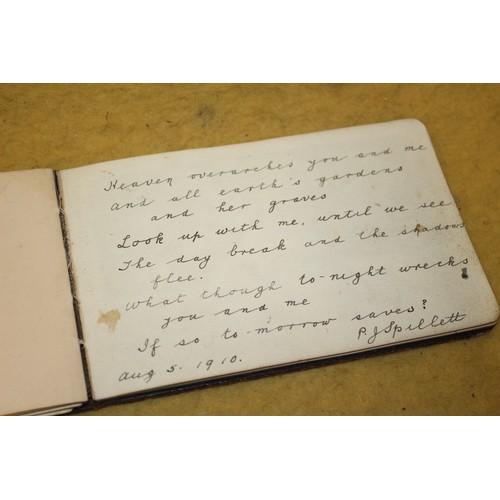 Heaven overarches you and me
and all earth's gardens
and her graves
Look up with me, until we see
The day break and the shadows
flee.
What though to-night wrecks
you and me
If so to-morrow saves?
P. J Spillett
Aug 5. 1910.